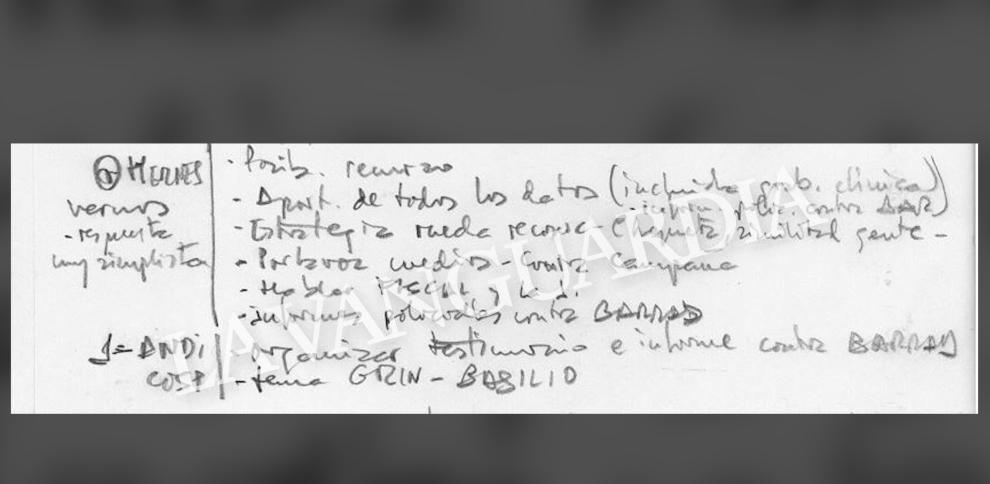 HERMES
vernos
- respuesta
muy simplista
- Posib. recurso
- Aport. de todos los datos (incluida grab. clinica)
- inform. polic. contra BAR)
- Estrategia rueda reconoc. (
- Portavoz medios - contra campaña
- Hablar FISCAL y
- informes policiales contra BARRAD
J = ANDI
COSP
- organizar testimonio e informe contra BARRAD
- tema GRIN - BASILIO
LA VANGUARDIA